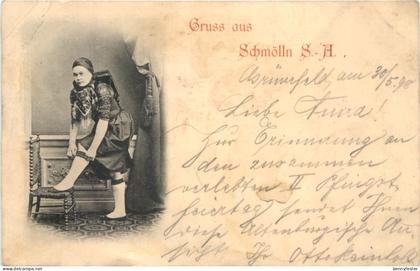 Gruss aus
Schmölln S.-A.
am 30/5.98
Liebe
Zur Erinnerung an
den zusammen
verlebten II Pfingst
feiertag sendet Ihnen
diese Altenburgische An
sicht Ihr